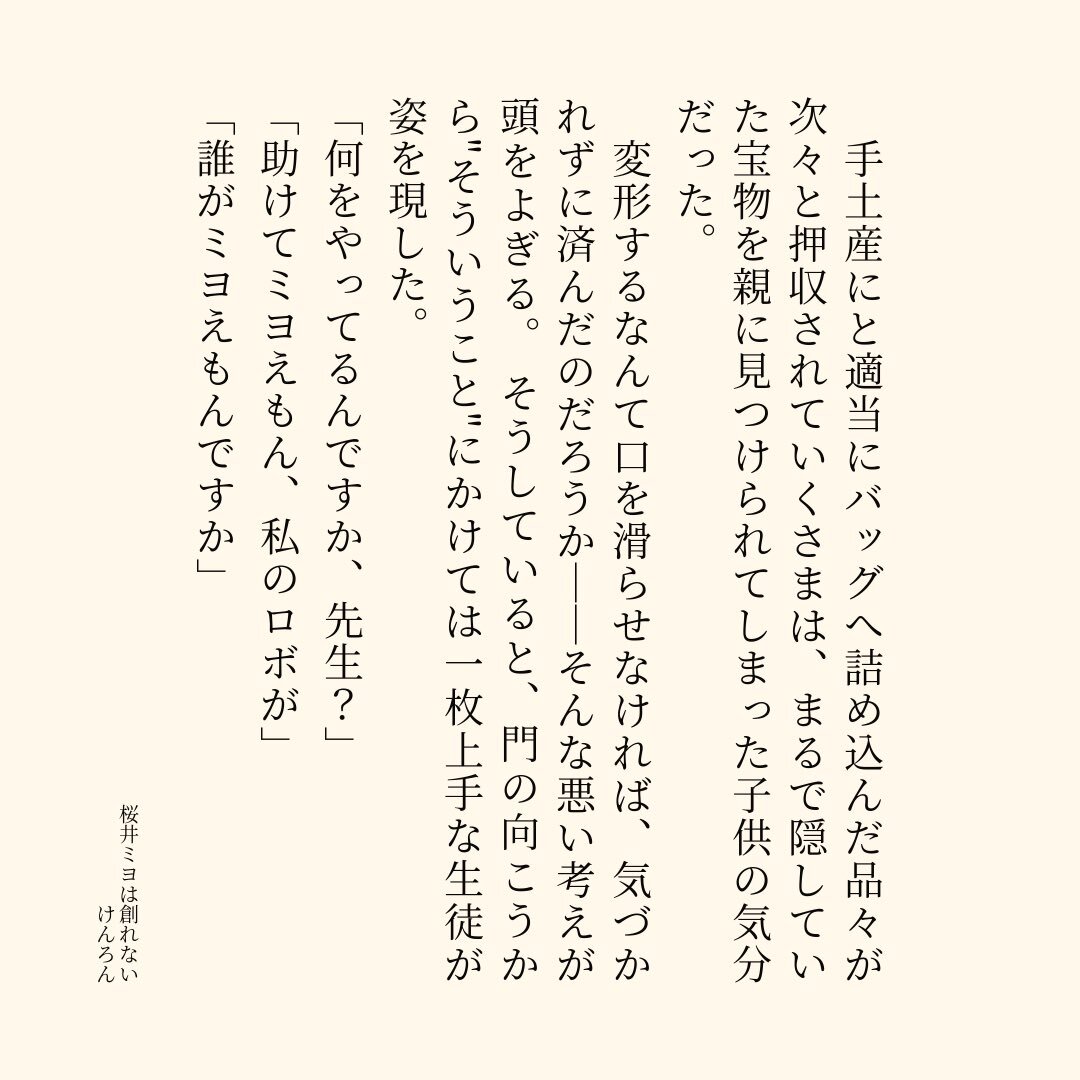 手土産にと適当にバッグへ詰め込んだ品々が
次々と押収されていくさまは、まるで隠してい
た宝物を親に見つけられてしまった子供の気分
だった。
　変形するなんて口を滑らせなければ、気づか
れずに済んだのだろうか――そんな悪い考えが
頭をよぎる。そうしていると、門の向こうか
ら〝そういうこと〟にかけては一枚上手な生徒が
姿を現した。
「何をやってるんですか、先生？」
「助けてミヨえもん、私のロボが」
「誰がミヨえもんですか」
桜井ミヨは創れない
けんろん